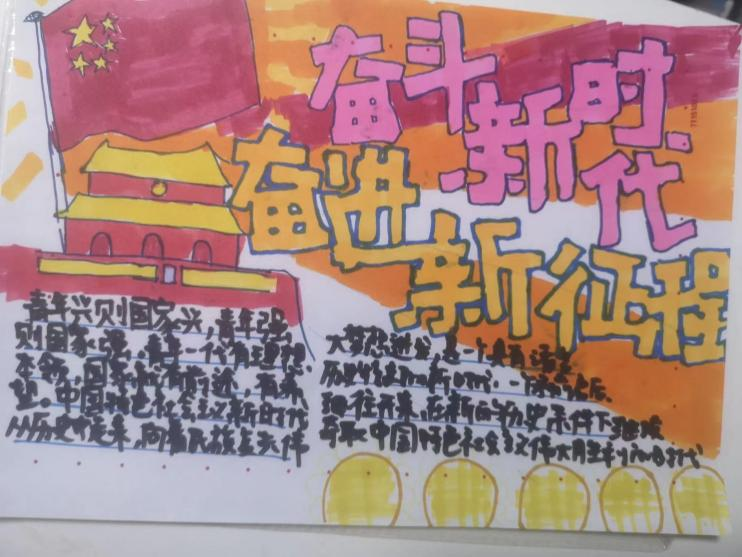 奋斗新时代
奋进新征程
青年兴则国家兴，青年强，
则国家强，青年一代有理想
本领，国家就有前途，有希
望。中国特色社会主义新时代
从历史中走来，向着民族复兴伟
大梦想进发，是一个具有
历史的新时代，一个
往开来，在新的历史条件下继续
夺取中国特色社会主义伟大胜利的时代